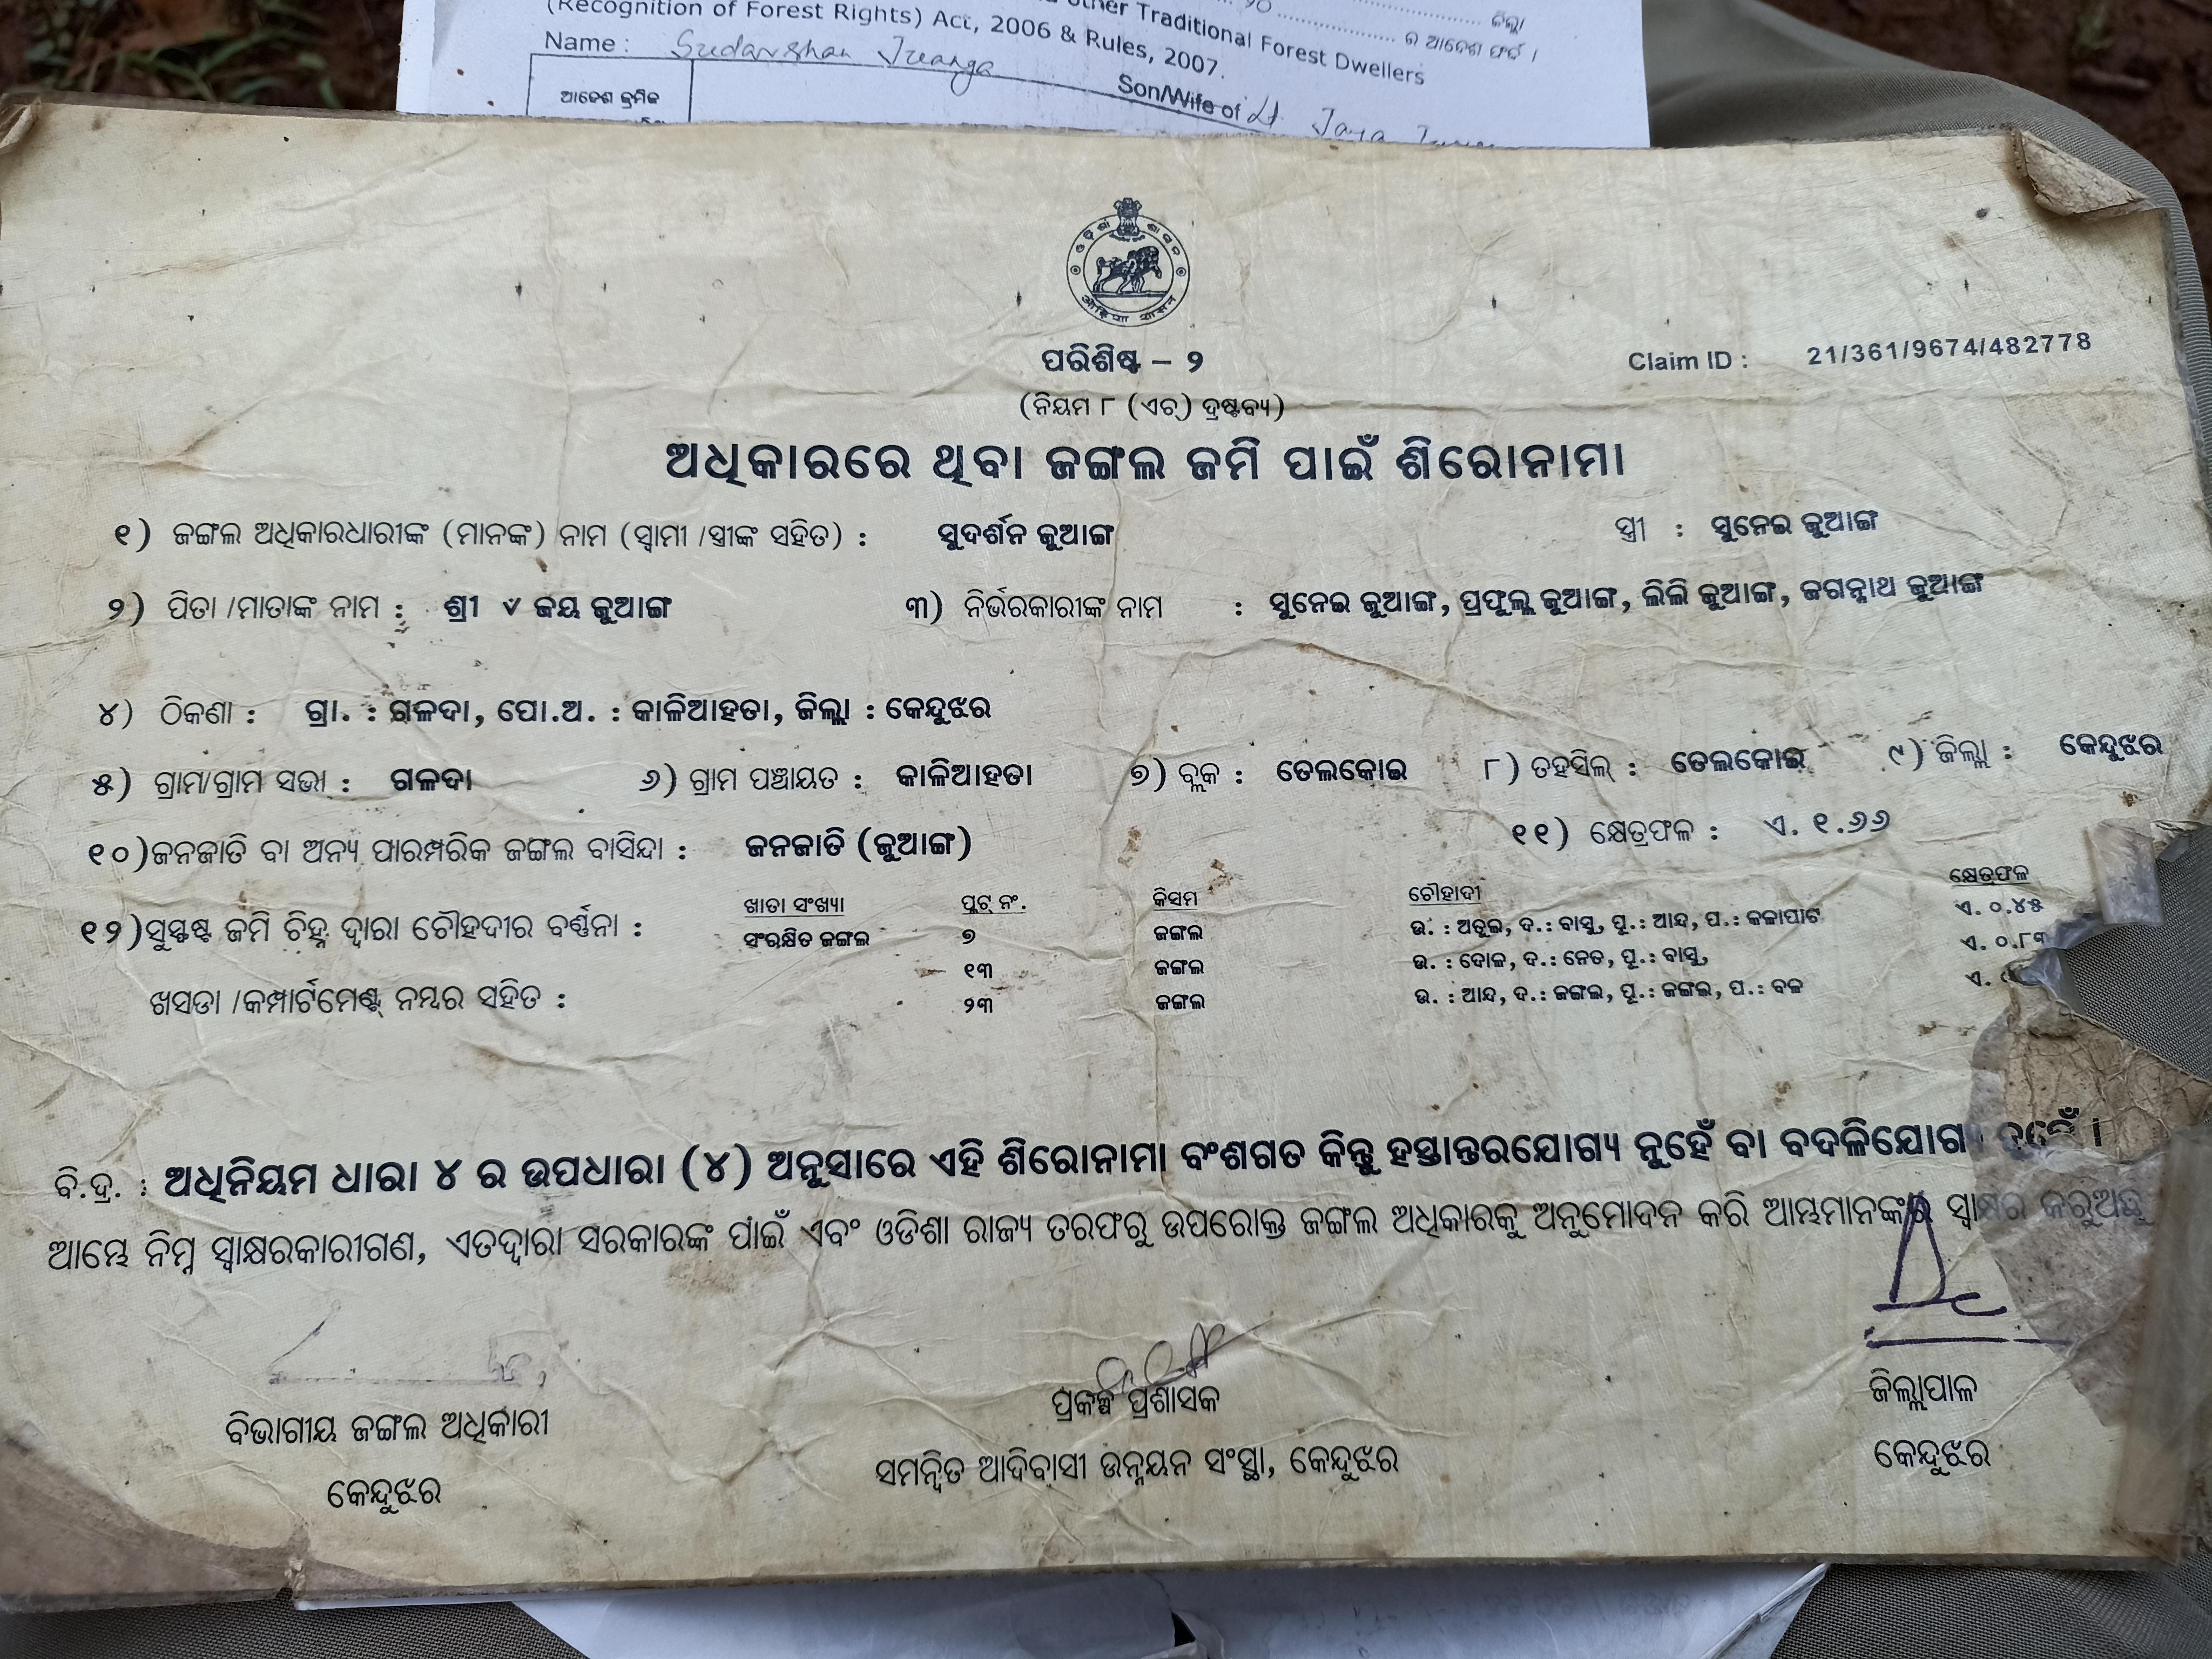 (Recognition of Forest Rights) Act, 2006 & Rules, 2007.
other Traditional Forest Dwellers
ଜିଲ୍ଲା
ର ଆଦେଶ ଫର୍ଦ୍ଦ ।
Name : Sudarshan Juanga Son/Wife of Lt Jaya
ଆଦେଶ କ୍ରମିକ
ଓଡ଼ିଶା ଶାସନ
ओड़िशा शासन
ପରିଶିଷ୍ଟ – ୨
Claim ID : 21/361/9674/482778
(ନିୟମ ୮ (ଏଚ୍) ଦ୍ରଷ୍ଟବ୍ୟ)
ଅଧିକାରରେ ଥିବା ଜଙ୍ଗଲ ଜମି ପାଇଁ ଶିରୋନାମା
୧) ଜଙ୍ଗଲ ଅଧିକାରଧାରୀଙ୍କ (ମାନଙ୍କ) ନାମ (ସ୍ୱାମୀ /ସ୍ତ୍ରୀଙ୍କ ସହିତ) : ସୁଦର୍ଶନ ଜୁଆଙ୍ଗ ସ୍ତ୍ରୀ : ସୁନେଇ ଜୁଆଙ୍ଗ
୨) ପିତା /ମାତାଙ୍କ ନାମ : ଶ୍ରୀ ୰ ଜୟ ଜୁଆଙ୍ଗ ୩) ନିର୍ଭରକାରୀଙ୍କ ନାମ : ସୁନେଇ ଜୁଆଙ୍ଗ, ପ୍ରଫୁଲ୍ଲ ଜୁଆଙ୍ଗ, ଲିଲି ଜୁଆଙ୍ଗ, ଜଗନ୍ନାଥ ଜୁଆଙ୍ଗ
୪) ଠିକଣା : ଗ୍ରା. : ଗଳଦା, ପୋ.ଅ. : କାଳିଆହତା, ଜିଲ୍ଲା : କେନ୍ଦୁଝର
୫) ଗ୍ରାମ/ଗ୍ରାମ ସଭା : ଗଳଦା ୬) ଗ୍ରାମ ପଞ୍ଚାୟତ : କାଳିଆହତା ୭) ବ୍ଲକ : ତେଲକୋଇ ୮) ତହସିଲ୍ : ତେଲକୋଇ ୯) ଜିଲ୍ଲା : କେନ୍ଦୁଝର
୧୦)ଜନଜାତି ବା ଅନ୍ୟ ପାରମ୍ପରିକ ଜଙ୍ଗଲ ବାସିନ୍ଦା : ଜନଜାତି (ଜୁଆଙ୍ଗ) ୧୧) କ୍ଷେତ୍ରଫଳ : ଏ. ୧.୬୬
୧୨)ସୁସ୍ପଷ୍ଟ ଜମି ଚିହ୍ନ ଦ୍ୱାରା ଚୌହଦୀର ବର୍ଣ୍ଣନା : ଖାତା ସଂଖ୍ୟା ପ୍ଲଟ୍ ନଂ. କିସମ ଚୌହାଦୀ କ୍ଷେତ୍ରଫଳ
ସଂରକ୍ଷିତ ଜଙ୍ଗଲ ୭ ଜଙ୍ଗଲ ଉ. : ଅତୁଇ, ଦ.: ବାସୁ, ପୂ.: ଆନ୍ଦ, ପ.: କଳାପାଟ ଏ. ୦.୪୫
୧୩ ଜଙ୍ଗଲ ଉ. : ଦୋଳ, ଦ.: ନେତ, ପୂ.: ବାସୁ, ଏ. ୦.୮୩
ଖସଡା /କମ୍ପାର୍ଟମେଣ୍ଟ୍ ନମ୍ବର ସହିତ : ୨୩ ଜଙ୍ଗଲ ଉ. : ଆନ୍ଦ, ଦ.: ଜଙ୍ଗଲ, ପୂ.: ଜଙ୍ଗଲ, ପ.: ବଳ ଏ.
ବି.ଦ୍ର. : ଅଧିନିୟମ ଧାରା ୪ ର ଉପଧାରା (୪) ଅନୁସାରେ ଏହି ଶିରୋନାମା ବଂଶଗତ କିନ୍ତୁ ହସ୍ତାନ୍ତରଯୋଗ୍ୟ ନୁହେଁ ବା ବଦଳିଯୋଗ୍ୟ ନୁହେଁ ।
ଆମ୍ଭେ ନିମ୍ନ ସ୍ୱାକ୍ଷରକାରୀଗଣ, ଏତଦ୍ୱାରା ସରକାରଙ୍କ ପାଇଁ ଏବଂ ଓଡିଶା ରାଜ୍ୟ ତରଫରୁ ଉପରୋକ୍ତ ଜଙ୍ଗଲ ଅଧିକାରକୁ ଅନୁମୋଦନ କରି ଆମ୍ଭମାନଙ୍କର ସ୍ୱାକ୍ଷର କରୁଅଛୁ
ବିଭାଗୀୟ ଜଙ୍ଗଲ ଅଧିକାରୀ
କେନ୍ଦୁଝର
ପ୍ରକଳ୍ପ ପ୍ରଶାସକ
ସମନ୍ୱିତ ଆଦିବାସୀ ଉନ୍ନୟନ ସଂସ୍ଥା, କେନ୍ଦୁଝର
ଜିଲ୍ଲାପାଳ
କେନ୍ଦୁଝର